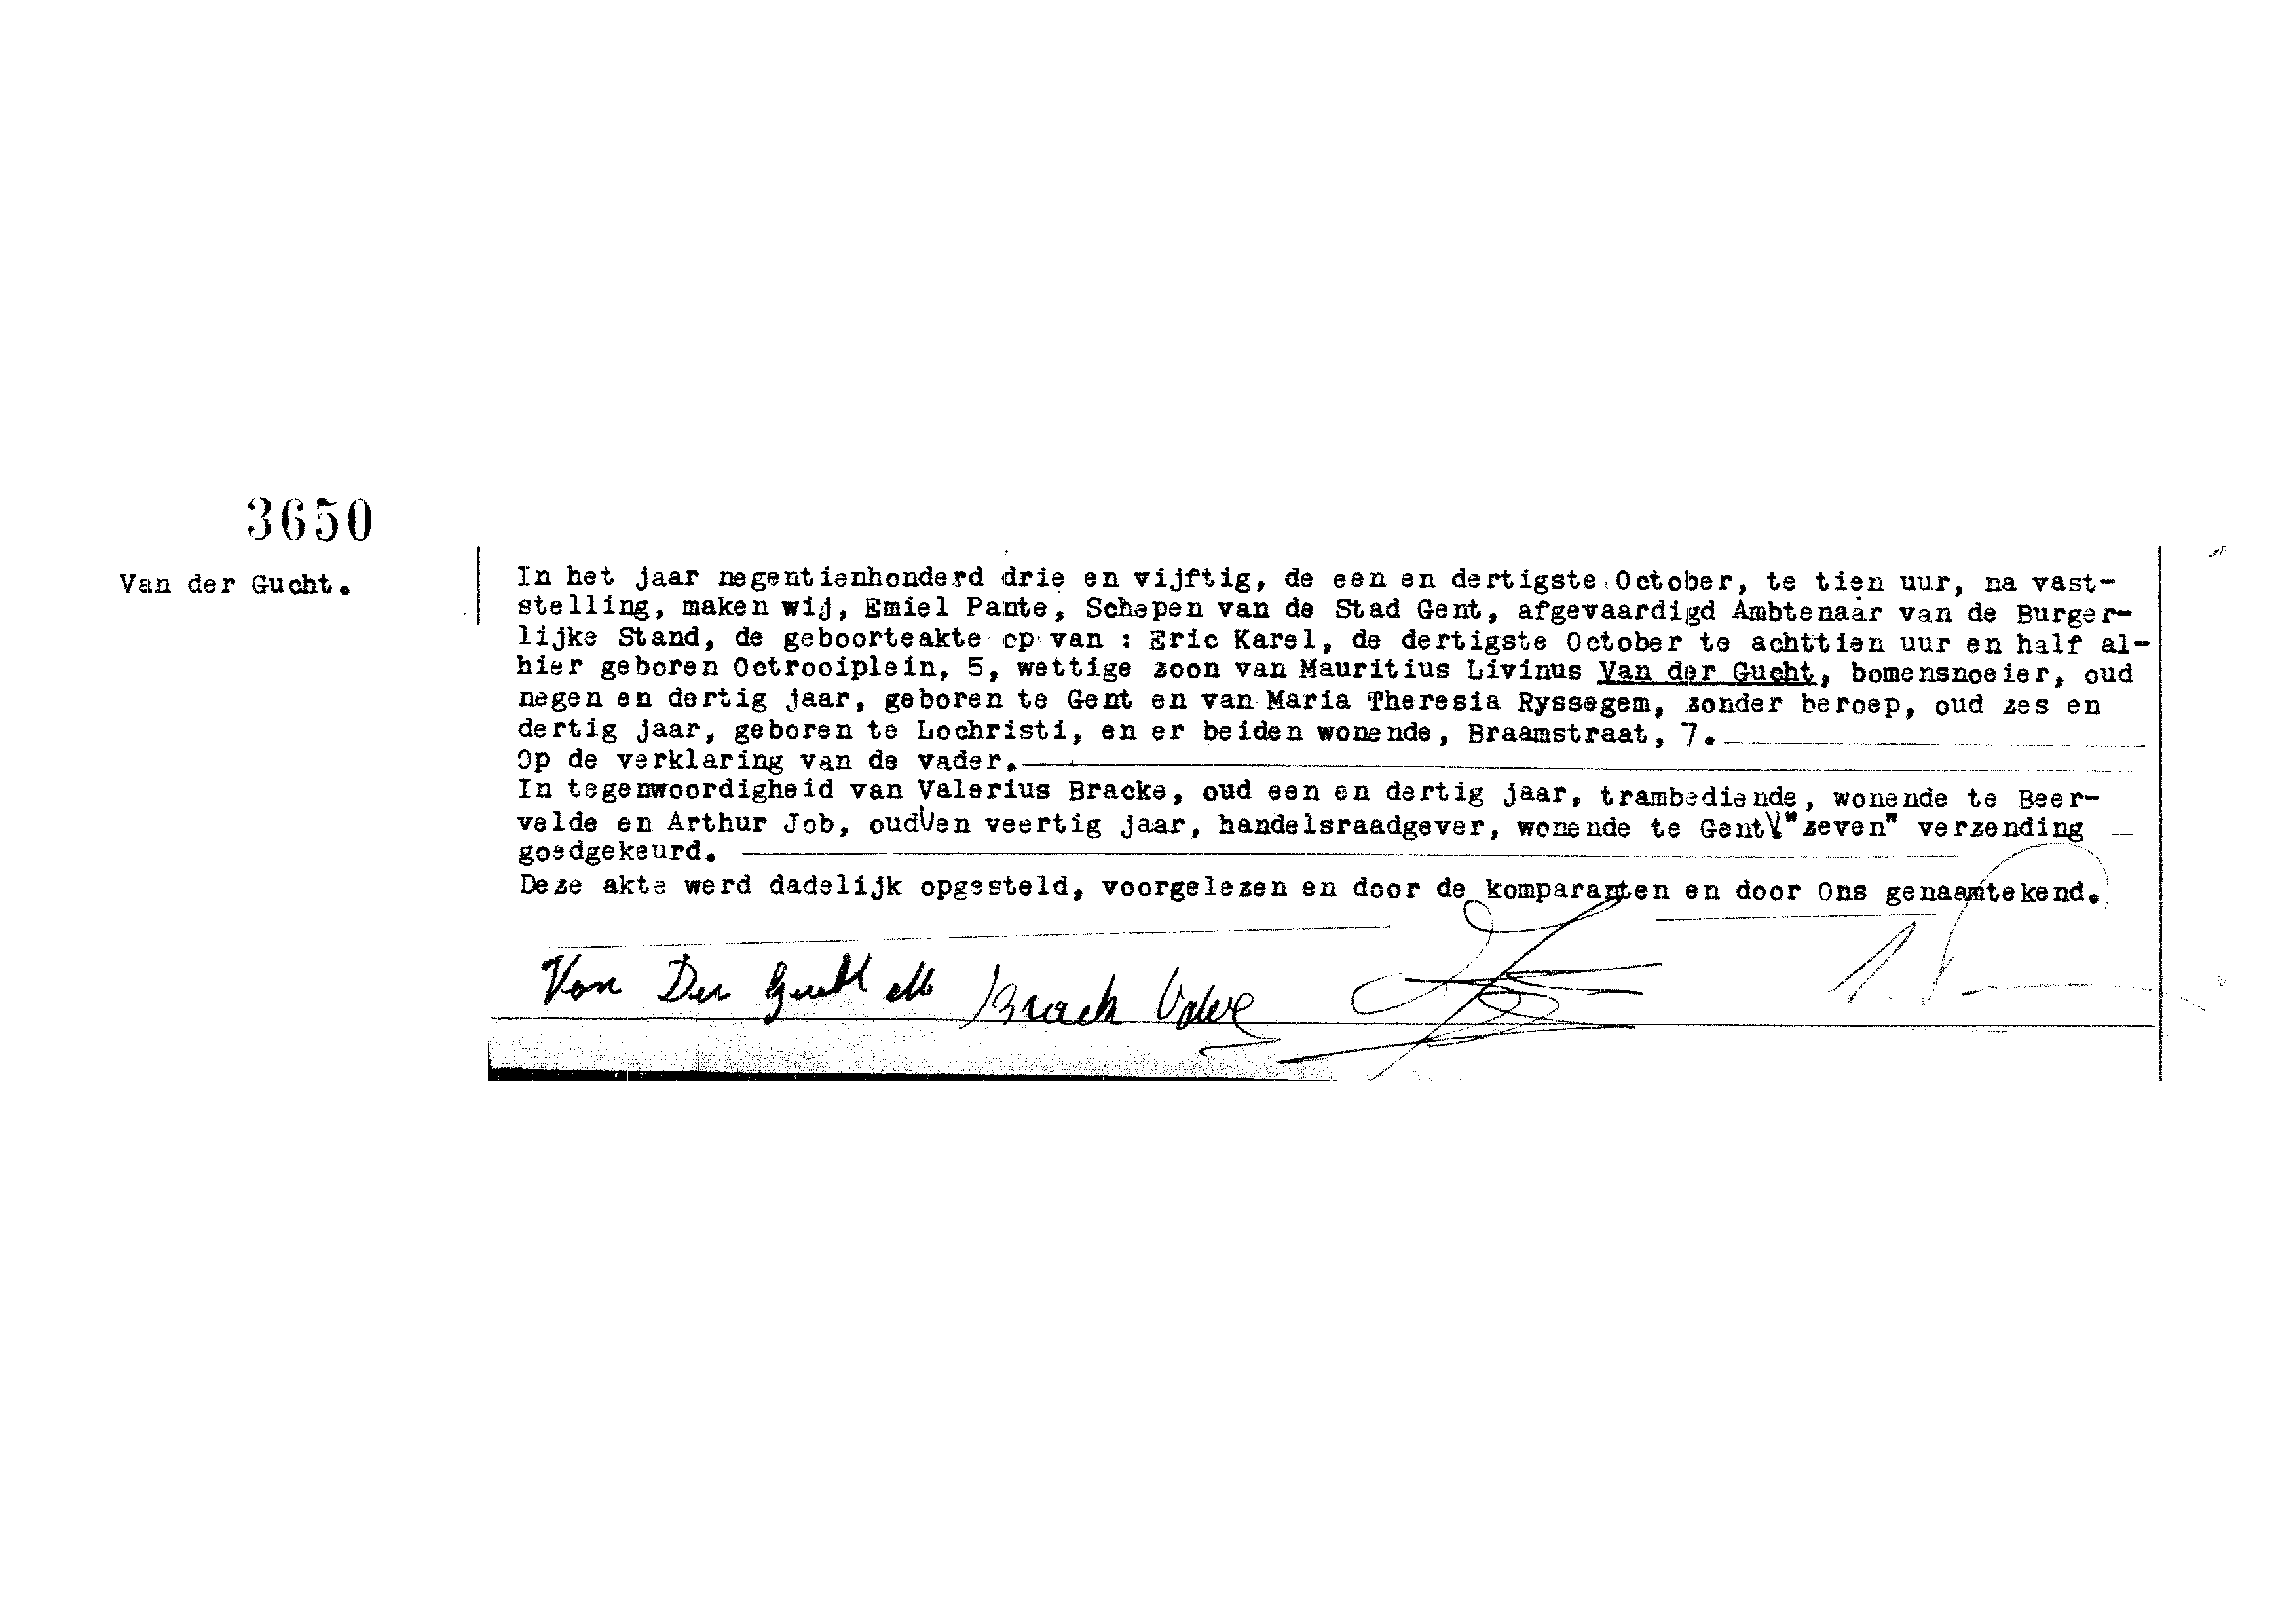 3650
Van der Gucht.
In het jaar negentienhonderd drie en vijftig, de een en dertigste October, te tien uur, na vast-
stelling, maken wij, Emiel Pante, Schepen van de Stad Gent, afgevaardigd Ambtenaar van de Burger-
lijke Stand, de geboorteakte op van : Eric Karel, de dertigste October te achttien uur en half al-
hier geboren Octrooiplein, 5, wettige zoon van Mauritius Livinus Van der Gucht, bomensnoeier, oud
negen en dertig jaar, geboren te Gent en van Maria Theresia Ryssegem, zonder beroep, oud zes en
dertig jaar, geboren te Lochristi, en er beiden wonende, Braamstraat, 7.
Op de verklaring van de vader.
In tegenwoordigheid van Valerius Bracke, oud een en dertig jaar, trambediende, wonende te Beer-
velde en Arthur Job, oud\/en veertig jaar, handelsraadgever, wonende te Gent\/"zeven" verzending
goedgekeurd.
Deze akte werd dadelijk opgesteld, voorgelezen en door de komparanten en door Ons genaamtekend.
Van Der Gucht